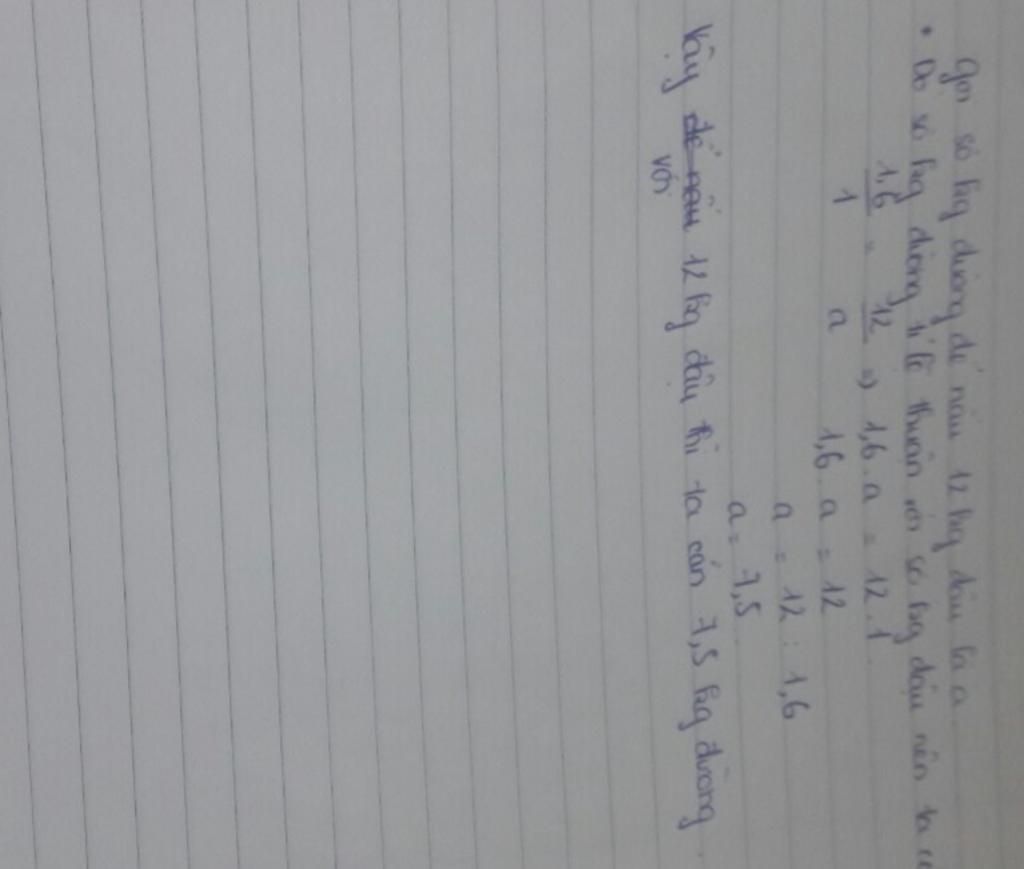 Gọi số kg đường để nấu 12 kg dâu là a
• Do số kg đường tỉ lệ thuận với số kg dâu nên ta có
1,6/1 = 12/a => 1,6 . a = 12 . 1
1,6 . a = 12
a = 12 : 1,6
a = 7,5
Vậy với 12 kg dâu thì ta cần 7,5 kg đường.